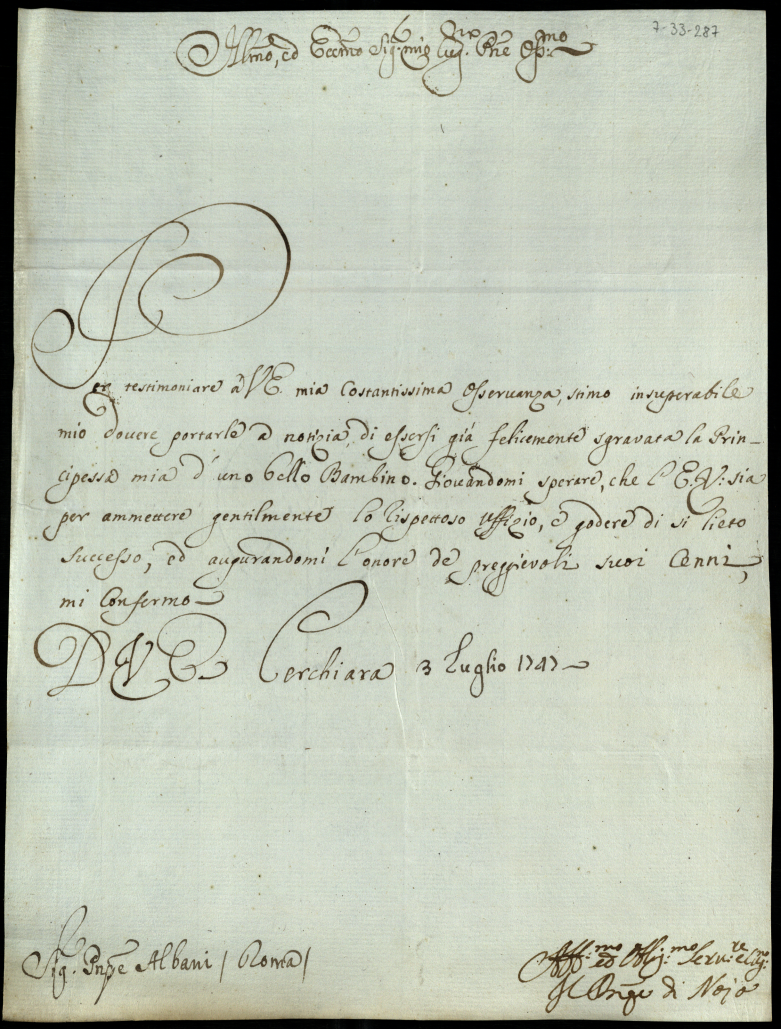 7-33-287
Illmo, ed Eccmo Sig. mio Sig. Pne Ossmo
Per testimoniare à V E. mia Costantissima Osservanza, stimo insuperabile
mio dovere portarle à notizia, di essersi già felicemente sgravata la Prin-
cipessa mia d'uno bello Bambino. Giovandomi sperare, che l'E. V: sia
per ammettere gentilmente lo Rispettoso Uffizio, è godere di si lieto
successo, ed augurandomi l'onore de preggievoli suoi Cenni,
mi Confermo
D V E Cerchiara 3 Luglio 1747
Sig. Pnpe Albani / Roma /
Affmo ed Obligmo Servre
Il Pnpe di Noja